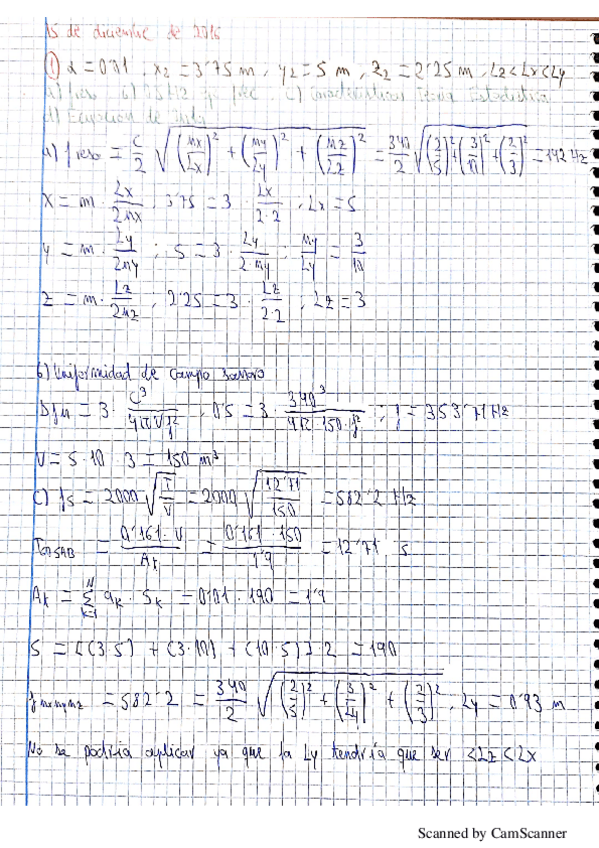 15 de diciembre de 2016
① α = 0'01 ; x₂ = 3'75 m , y₂ = 5 m , z₂ = 2'25 m , Lz < Lx < Ly
d) Ecuacion de
a) f reso = c/2 √((nx/Lx)² + (ny/Ly)² + (nz/Lz)²) = 340/2 √((2/5)² + (3/10)² + (2/3)²) = 142 Hz
X = m · Lx/2nx ; 3'75 = 3 · Lx/2·2 , Lx = 5
Y = m · Ly/2ny ; 5 = 3 · Ly/2·ny ; ny/Ly = 3/10
Z = m · Lz/2nz ; 2'25 = 3 · Lz/2·2 ; Lz = 3
b) Uniformidad de campo sonoro
= 3 · c³/4πVf² , 0'5 = 3 · 340³/4π·150·f² ; f = 353'71 Hz
V = 5 · 10 · 3 = 150 m³
c) fs = 2000 √(T/V) = 2000 √(12'71/150) = 582'2 Hz
T60SAB = 0'161·V/At = 0'161·150/1'9 = 12'71 s
Ak = Σ N k=1 αk · Sk = 0'01 · 190 = 1'9
S = [(3·5) + (3·10) + (10·5)] · 2 = 190
f nx ny nz = 582'2 = 340/2 √((2/5)² + (3/Ly)² + (2/3)²) , Ly = 0'93 m
No se podria aplicar ya que la Ly tendria que ser < Lz < Lx
Scanned by CamScanner